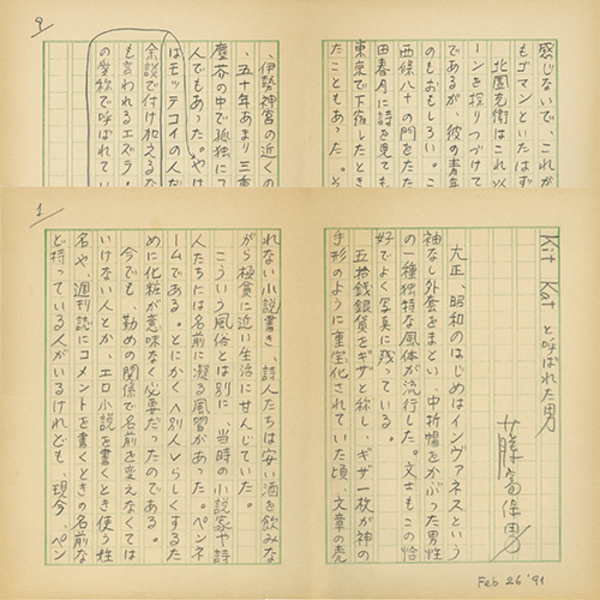 9
感じないで、これが
もゴマンといたはず
北園克衛はこれ以
ーンを探りつづけて
であるが、彼の青年
のもおもしろい。こ
西條八十の門をたた
田春月に詩を見ても
東京で下宿したとき
たこともあった。そ
、伊勢神宮の近くの
、五十年あまり三重
塵芥の中で孤独に
人でもあった。やは
はモッテコイの人だ
余談で付け加えるな
も言われるエズラ・
の愛称で呼ばれてい
1
Kit Kat と呼ばれた男
藤富保男
大正、昭和のはじめはインヴァネスという
袖なし外套をまとい、中折帽をかぶった男性
の一種独特な風体が流行した。文士もこの恰
好でよく写真に残っている。
五拾銭銀貨をギザと称し、ギザ一枚が神の
手形のように重宝化されていた頃、文章の売
れない小説書き、詩人たちは安い酒を飲みな
がら極貧に近い生活に甘んじていた。
こういう風俗とは別に、当時の小説家や詩
人たちには名前に凝る風習があった。ペンネ
ームである。とにかく〈別人〉らしくするた
めに化粧が意味なく必要だったのである。
今でも、勤めの関係で名前を変えなくては
いけない人とか、エロ小説を書くとき使う姓
名や、週刊誌にコメントを書くときの名前な
ど持っている人がいるけれども、現今、ペン
Feb 26 '91